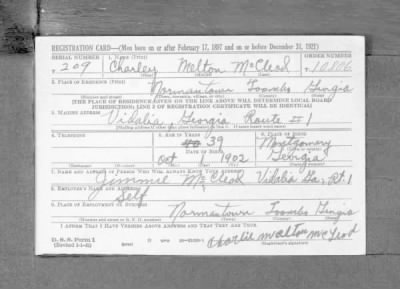 REGISTRATION CARD—(Men born on or after February 17, 1897 and on or before December 31, 1921)
SERIAL NUMBER 1. NAME (Print) ORDER NUMBER
209 Charley Melton McCleod 10806
(First) (Middle) (Last)
2. PLACE OF RESIDENCE (Print)
Normantown Toombs Georgia
(Number and street) (Town, township, village, or city) (County) (State)
[THE PLACE OF RESIDENCE GIVEN ON THE LINE ABOVE WILL DETERMINE LOCAL BOARD
JURISDICTION; LINE 2 OF REGISTRATION CERTIFICATE WILL BE IDENTICAL]
3. MAILING ADDRESS
Vidalia Georgia Route # 1
[Mailing address if other than place indicated on line 2. If same insert word same]
4. TELEPHONE 5. AGE IN YEARS 6. PLACE OF BIRTH
39 Montgomery
DATE OF BIRTH
Oct 1 1902 Georgia
(Exchange) (Number) (Mo.) (Day) (Yr.) (State or country)
7. NAME AND ADDRESS OF PERSON WHO WILL ALWAYS KNOW YOUR ADDRESS
Jimmie McCleod Vidalia Ga, Rt. 1
8. EMPLOYER'S NAME AND ADDRESS
Self
9. PLACE OF EMPLOYMENT OR BUSINESS
Normantown Toombs Georgia
(Number and street or R. F. D. number) (Town) (County) (State)
I AFFIRM THAT I HAVE VERIFIED ABOVE ANSWERS AND THAT THEY ARE TRUE.
D. S. S. Form 1
(Revised 1-1-42) (over) Charlie Melton McCleod
(Registrant's signature)